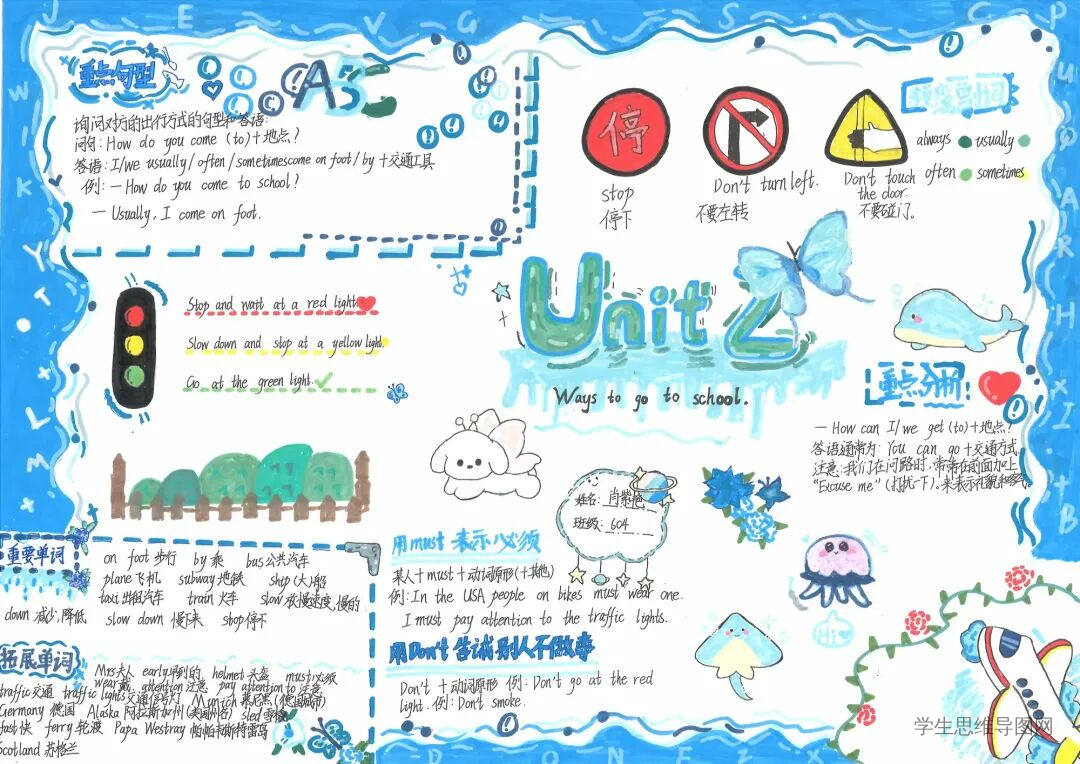 重点句型
A3
询问对方的出行方式的句型和答语:
问句: How do you come (to)+地点?
答语: I/we usually/often/sometimescome on foot/by+交通工具
例: —How do you come to school?
—Usually, I come on foot.
停
stop
停下
Don't turn left.
不要左转
Don't touch
the door.
不要碰门。
always usually
often sometimes
Stop and wait at a red light
Slow down and stop at a yellow light
Go at the green light
Unit 2
Ways to go to school.
重点分析
—How can I/we get (to)+地点?
答语通常为: You can go+交通方式.
注意:我们在问路时,常常在前面加上
"Excuse me"(打扰一下),来表示礼貌和
姓名:
班级: 604
重要单词
on foot 步行 by 乘 bus 公共汽车
plane 飞机 subway 地铁 ship (大)船
taxi 出租汽车 train 火车 slow 放慢速度,慢的
down 减少,降低 slow down 慢下来 stop 停下
拓展单词
Mrs 夫人 early 早到的 helmet 头盔 must 必须
wear 戴 attention 注意 pay attention to 注意
traffic 交通 traffic lights 交通信号灯 Munich 慕尼黑(德国城市)
Germany 德国 Alaska 阿拉斯加州(美国州名) sled 雪橇
fast 快 ferry 轮渡 Papa Westray 帕帕韦斯特雷岛
Scotland 苏格兰
用must 表示必须
某人+must+动词原形(+其他)
例: In the USA people on bikes must wear one.
I must pay attention to the traffic lights.
用Don't 告诫别人不做事
Don't+动词原形 例: Don't go at the red
light. 例: Don't smoke.
Hi
学生思维导图网